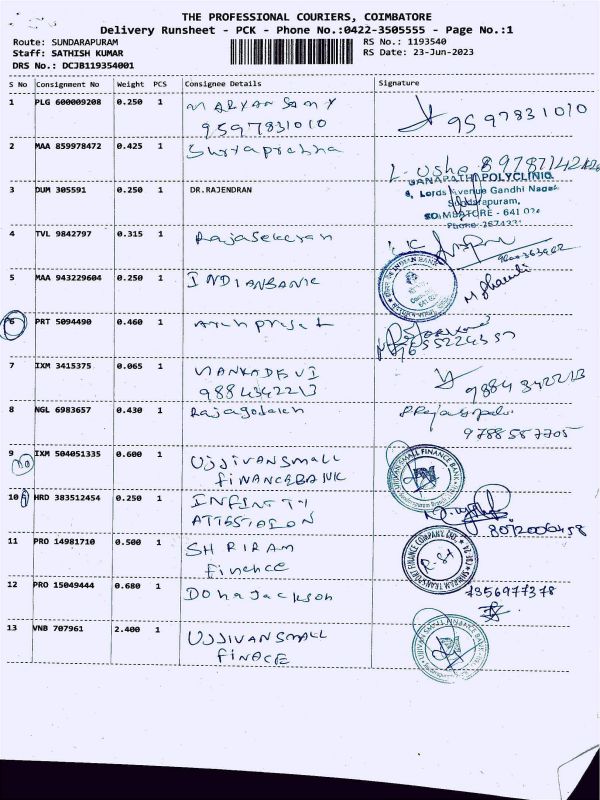 THE PROFESSIONAL COURIERS, COIMBATORE
Delivery Runsheet - PCK - Phone No.:0422-3505555 - Page No.:1
Route: SUNDARAPURAM RS No.: 1193540
Staff: SATHISH KUMAR RS Date: 23-Jun-2023
DRS No.: DCJB119354001
S No Consignment No Weight PCS Consignee Details Signature
1 PLG 600009208 0.250 1 MARYAN SAMY
9597831010 9597831010
2 MAA 859978472 0.425 1 Suryaprabha
L. usha
GANAPATHI POLYCLINIC
3 DUM 305591 0.250 1 DR.RAJENDRAN 8, Lords Avenue Gandhi Nagar
Sundarapuram,
COIMBATORE - 641 024
4 TVL 9842797 0.315 1 Rajasekeran
5 MAA 943229604 0.250 1 INDIANBANK
INDIAN BANK
6 PRT 5094490 0.460 1
7655224357
7 IXM 3415375 0.065 1
9884342213 9884342213
8 NGL 6983657 0.430 1
9788587705
9 IXM 504051335 0.600 1 UJJIVANSMALL
no FINANCEBANK
UJJIVAN SMALL FINANCE BANK
10 HRD 383512454 0.250 1 INFINITY
ATTESTATION
8072006458
11 PRO 14981710 0.500 1 SHRIRAM
finance
SHRIRAM TRANSPORT FINANCE COMPANY
12 PRO 15049444 0.680 1 Dona Jackson 7356977378
13 VNB 707961 2.400 1 UJJIVANSMALL
FINACE
UJJIVAN SMALL FINANCE BANK